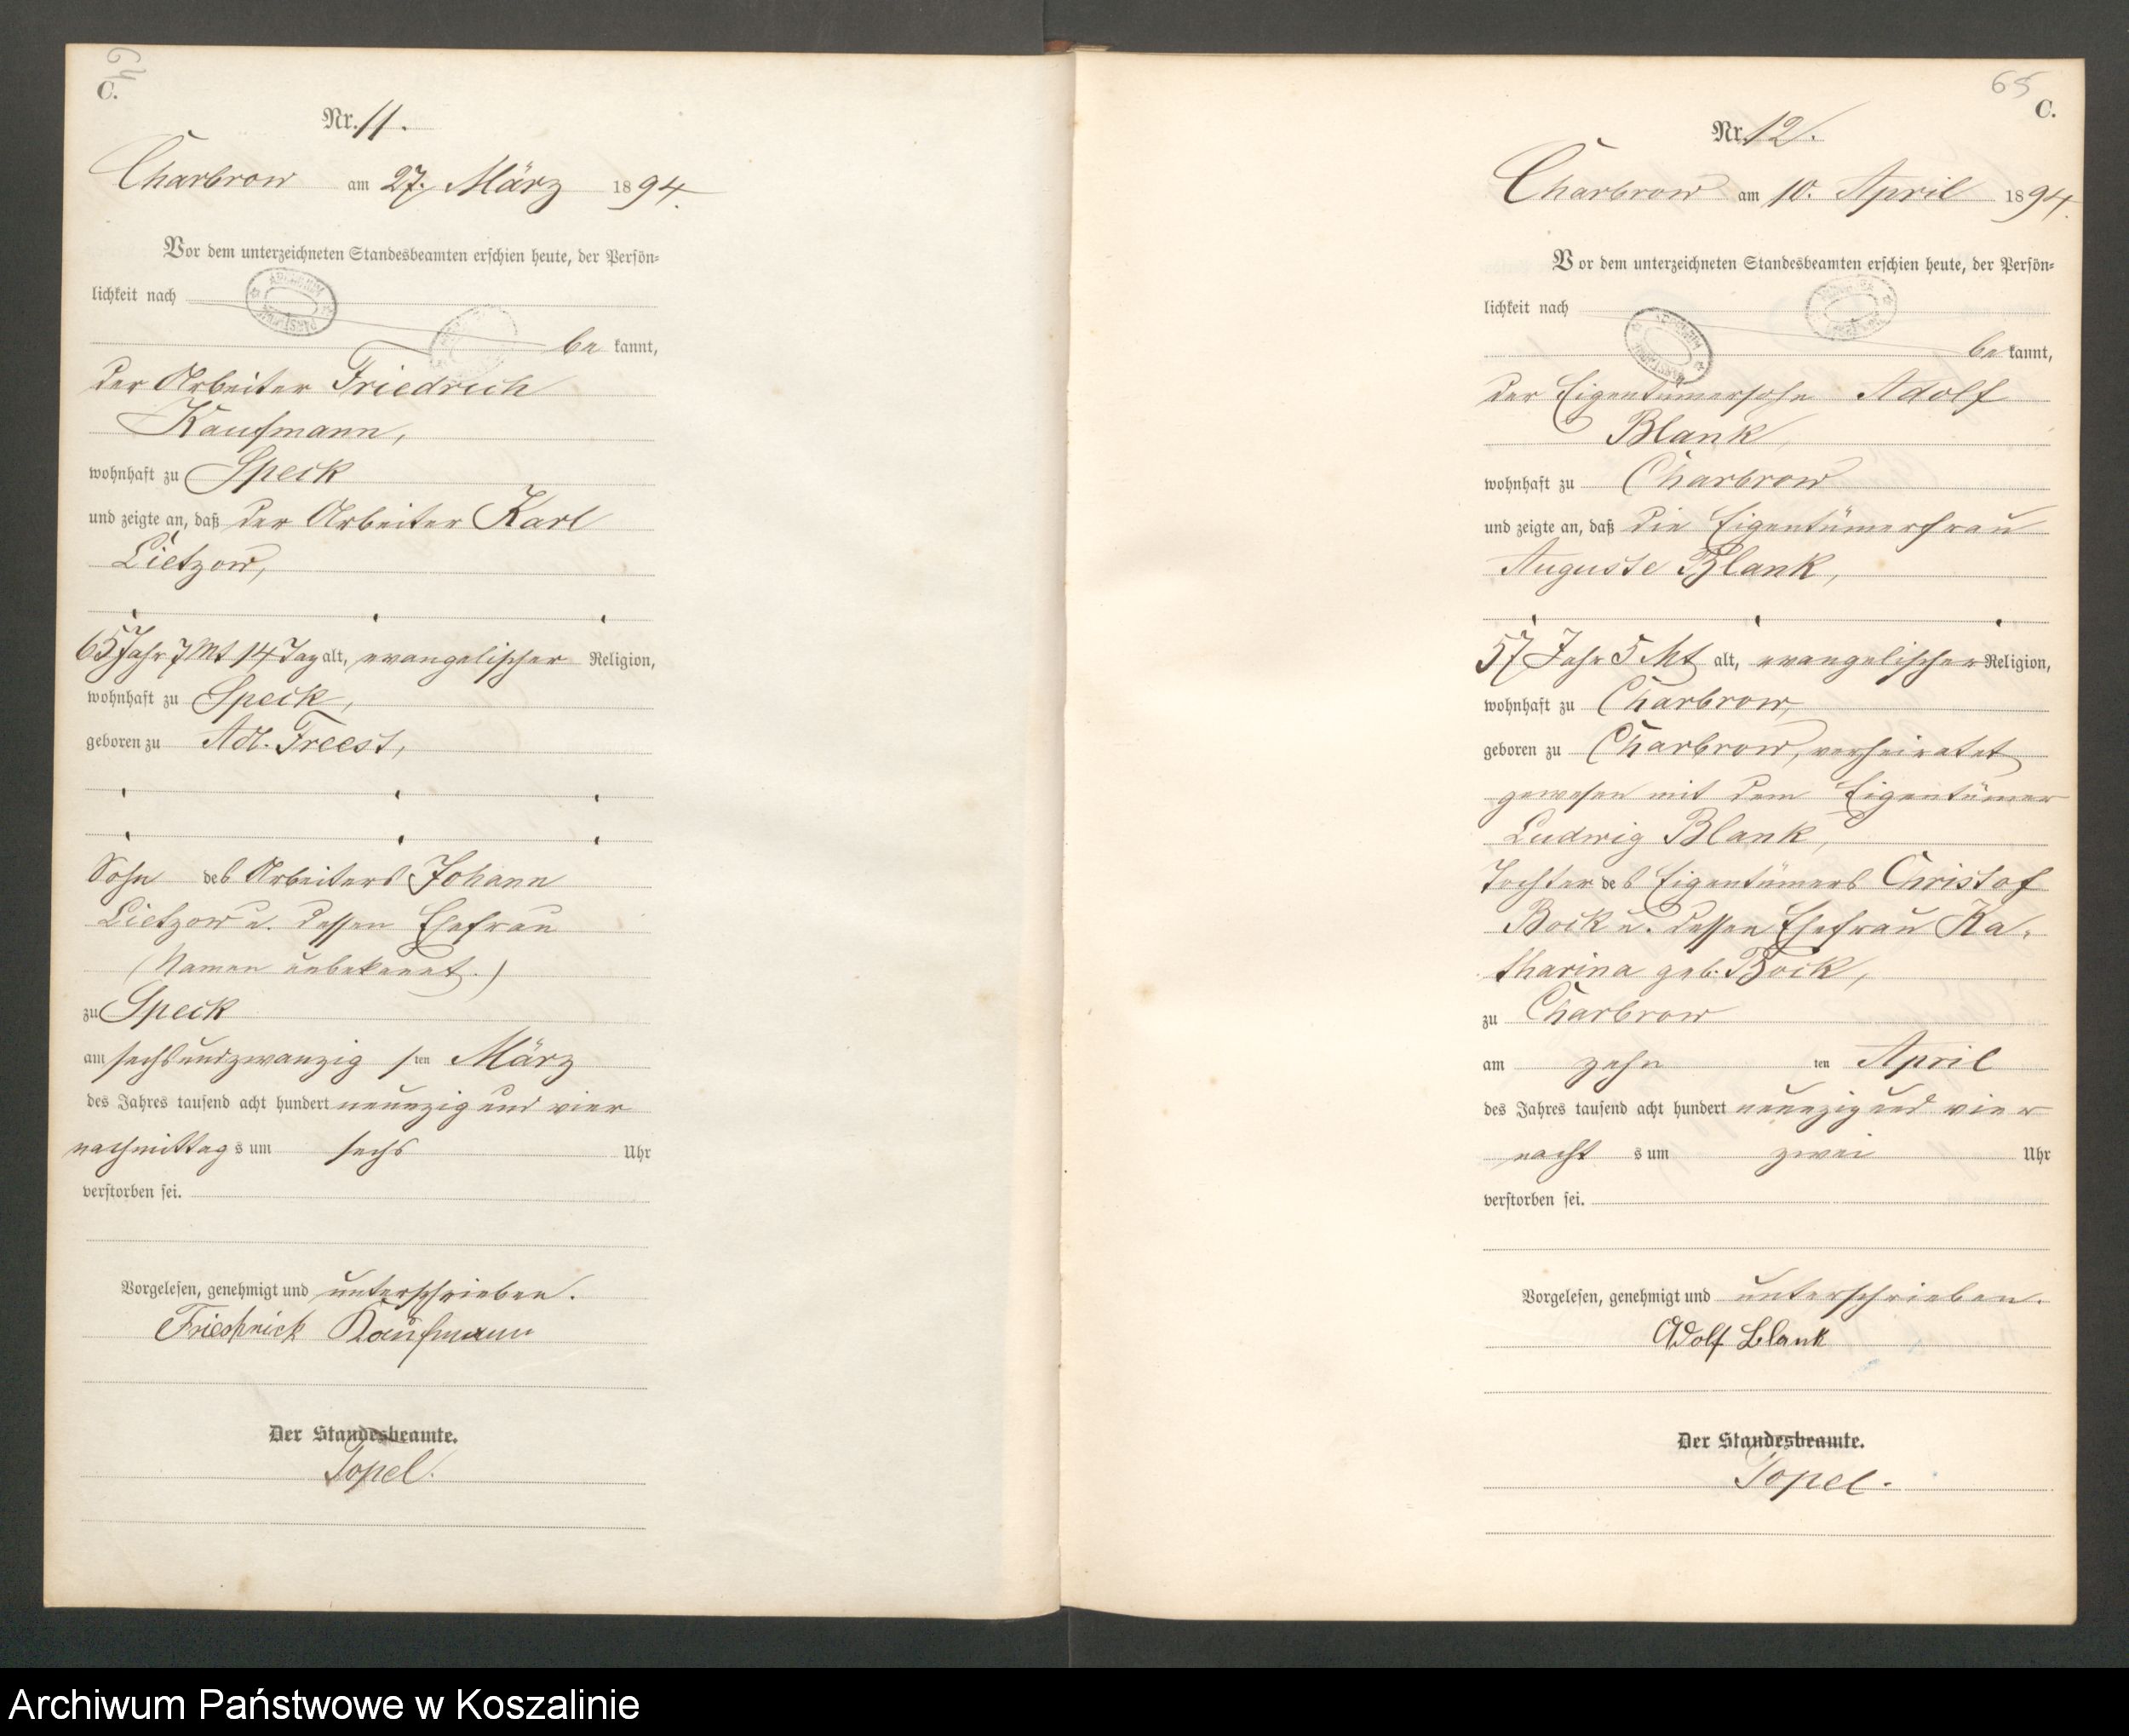 64
C.
Nr. 11.
Charbrow am 27. März 1894.
Vor dem unterzeichneten Standesbeamten erschien heute, der Persön-
lichkeit nach
be kannt,
der Arbeiter Friedrich
Kaufmann,
wohnhaft zu Speck
und zeigte an, daß der Arbeiter Karl
Lietzow,
65 Jahr 7 Mt 14 Tag alt, evangelischer Religion,
wohnhaft zu Speck,
geboren zu Adl. Freest,
Sohn des Arbeiters Johann
Lietzow u. dessen Ehefrau
(Namen unbekannt.)
zu Speck
am sechsundzwanzig sten März
des Jahres tausend acht hundert neunzig und vier
nachmittag s um sechs Uhr
verstorben sei.
Vorgelesen, genehmigt und unterschrieben.
Friedrich Kaufmann
Der Standesbeamte.
Topel.
65
C.
Nr. 12.
Charbrow am 10. April 1894.
Vor dem unterzeichneten Standesbeamten erschien heute, der Persön-
lichkeit nach
be kannt,
der Eigentümersohn Adolf
Blank,
wohnhaft zu Charbrow
und zeigte an, daß die Eigentümerfrau
Auguste Blank,
57 Jahr 5 Mt alt, evangelischer Religion,
wohnhaft zu Charbrow,
geboren zu Charbrow, verheiratet
gewesen mit dem Eigentümer
Ludwig Blank,
Tochter des Eigentümers Christof
Bock u. dessen Ehefrau Ka-
tharina geb. Bock,
zu Charbrow
am zehn ten April
des Jahres tausend acht hundert neunzig und vier
nacht s um zwei Uhr
verstorben sei.
Vorgelesen, genehmigt und unterschrieben.
Adolf Blank
Der Standesbeamte.
Topel.
Archiwum Państwowe w Koszalinie